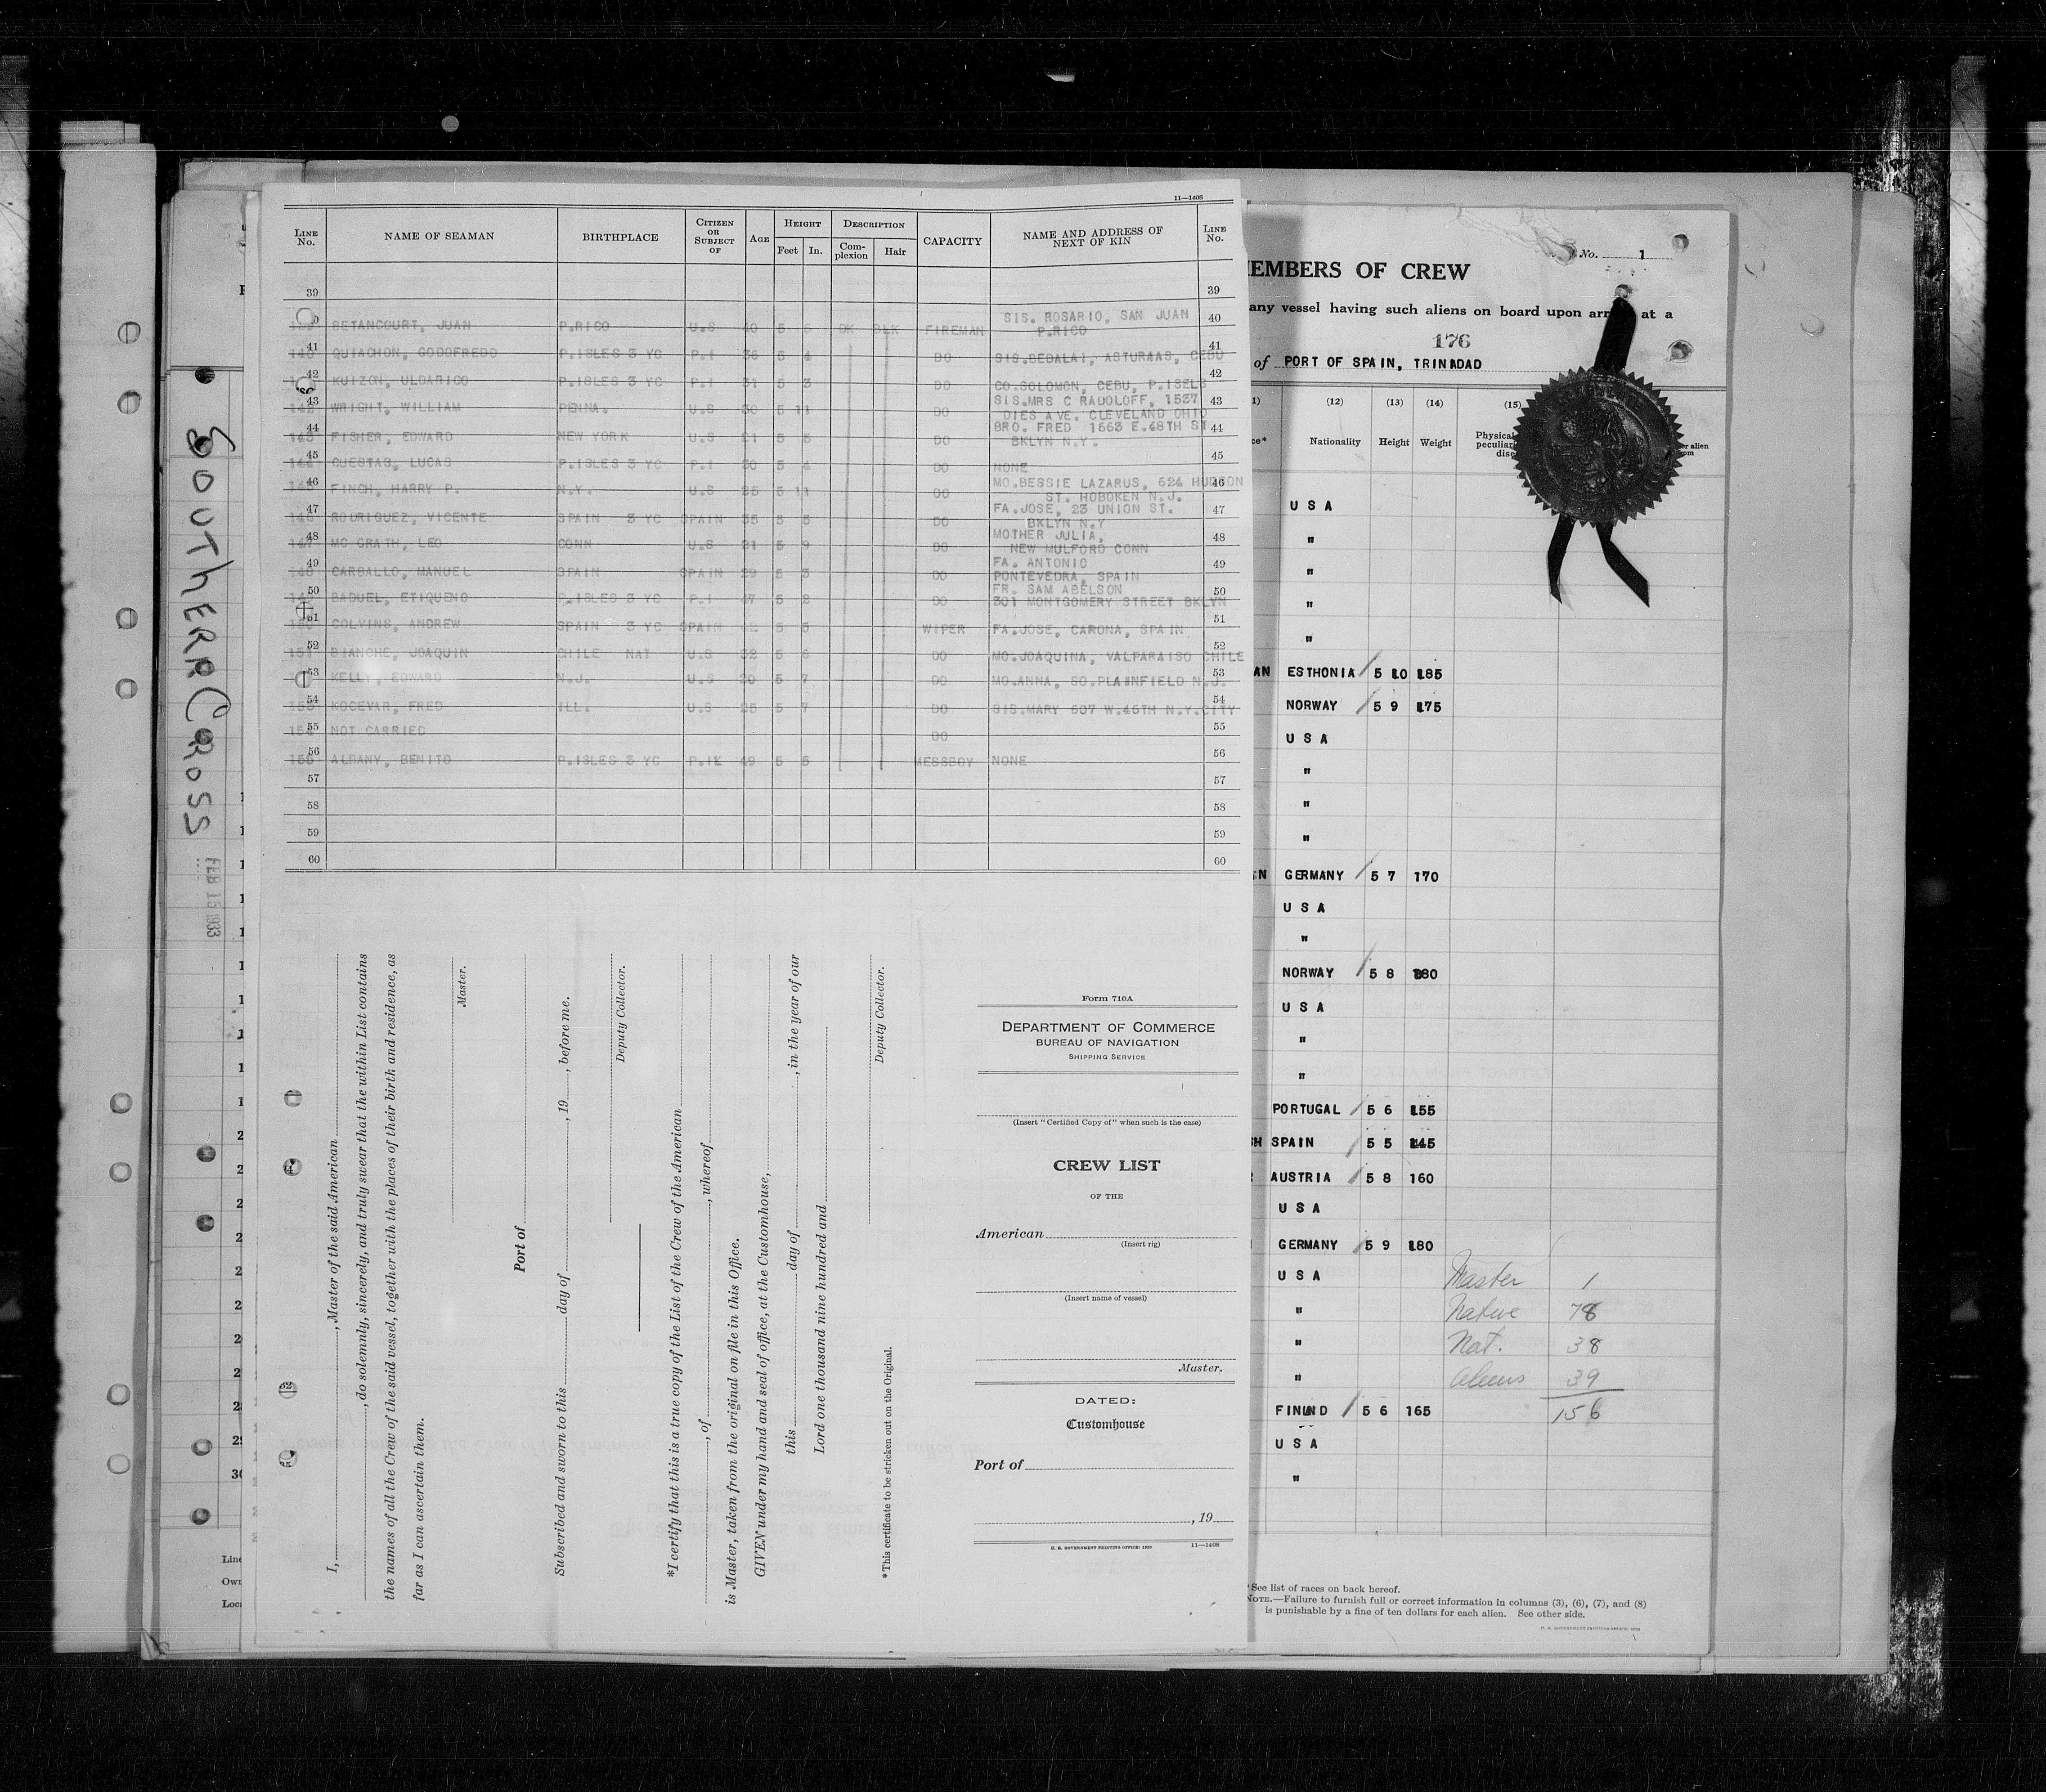 11—1408
LINE No. NAME OF SEAMAN BIRTHPLACE CITIZEN OR SUBJECT OF AGE HEIGHT Feet In. DESCRIPTION Complexion Hair CAPACITY NAME AND ADDRESS OF NEXT OF KIN LINE No.
39 39
BETANCOURT, JUAN P.RICO U.S 40 5 6 DK BLK FIREMAN SIS. ROSARIO, SAN JUAN P.RICO 40
41 140 QUIACHON, GODOFREDO P.ISLES 3 YC P.I 36 5 4 DO SIS.DEDALAI, ASTURAAS, CEBU 41
42 KUIZON, ULDARICO P.ISLES 3 YC P.I 31 5 3 DO CO.SOLOMON, CEBU, P.ISELS 42
43 142 WRIGHT, WILLIAM PENNA. U.S 30 5 11 DO SIS.MRS C RADOLOFF, 1537 DIES AVE. CLEVELAND OHIO 43
44 143 FISHER, EDWARD NEW YORK U.S 21 5 DO BRO. FRED 1663 E.48TH ST BKLYN N.Y. 44
45 144 CUESTAS, LUCAS P.ISLES 3 YC P.I 30 5 4 DO NONE 45
46 145 FINCH, HARRY P. N.Y. U.S 25 5 11 DO MO.BESSIE LAZARUS, 624 HUDSON ST. HOBOKEN N.J. 46
47 146 RODRIGUEZ, VICENTE SPAIN 3 YC SPAIN 35 5 5 DO FA.JOSE, 23 UNION ST. BKLYN N.Y 47
48 147 MC GRATH, LEO CONN U.S 21 5 9 DO MOTHER JULIA, NEW MULFORD CONN 48
49 148 CARBALLO, MANUEL SPAIN SPAIN 29 5 3 DO FA. ANTONIO PONTEVEDRA, SPAIN 49
50 149 BADUEL, ETIQUENO P.ISLES 3 YC P.I 47 5 2 DO FR. SAM ABELSON 301 MONTGOMERY STREET BKLYN 50
51 COLVINS, ANDREW SPAIN 3 YC SPAIN 5 5 WIPER FA.JOSE, CARONA, SPAIN 51
52 151 BIANCHE, JOAQUIN CHILE NAT U.S 32 5 6 DO MO.JOAQUINA, VALPARAISO CHILE 52
53 KELLY, EDWARD N.J. U.S 20 5 7 DO MO.ANNA, SO.PLAINFIELD N.J. 53
54 153 KOCEVAR, FRED ILL. U.S 25 5 7 DO SIS.MARY 607 W.45TH N.Y.CITY 54
55 154 NOT CARRIED DO 55
56 155 ALBANY, BENITO P.ISLES 3 YC P.I 49 5 5 MESSBOY NONE 56
57 57
58 58
59 59
60 60
I, , Master of the said American
, do solemnly, sincerely, and truly swear that the within List contains
the names of all the Crew of the said vessel, together with the places of their birth and residence, as
far as I can ascertain them.
Master.
Port of
Subscribed and sworn to this day of , 19 , before me.
Deputy Collector.
*I certify that this is a true copy of the List of the Crew of the American
, of , whereof
is Master, taken from the original on file in this Office.
GIVEN under my hand and seal of office, at the Customhouse,
this day of , in the year of our
Lord one thousand nine hundred and
Deputy Collector.
*This certificate to be stricken out on the Original.
Form 710A
DEPARTMENT OF COMMERCE
BUREAU OF NAVIGATION
SHIPPING SERVICE
(Insert "Certified Copy of" when such is the case)
CREW LIST
OF THE
American
(Insert rig)
(Insert name of vessel)
Master.
DATED:
Customhouse
Port of
, 19
U. S. GOVERNMENT PRINTING OFFICE: 1930 11—1408
SOUTHERN CROSS
FEB 15 1933
Line
Own
Loca
No. 1
EMBERS OF CREW
any vessel having such aliens on board upon arr at a
176
of PORT OF SPAIN, TRINIDAD
(12) (13) (14) (15)
Nationality Height Weight Physical peculiar dise
U S A
"
"
"
"
ESTHONIA 5 10 185
NORWAY 5 9 175
U S A
"
"
"
GERMANY 5 7 170
U S A
"
NORWAY 5 8 180
U S A
"
"
PORTUGAL 5 6 155
SPAIN 5 5 145
AUSTRIA 5 8 160
U S A
GERMANY 5 9 180
U S A Master 1
" Native 78
" Nat. 38
" Aliens 39
FINLAND 5 6 165 156
U S A
"
*See list of races on back hereof.
NOTE.—Failure to furnish full or correct information in columns (3), (6), (7), and (8)
is punishable by a fine of ten dollars for each alien. See other side.